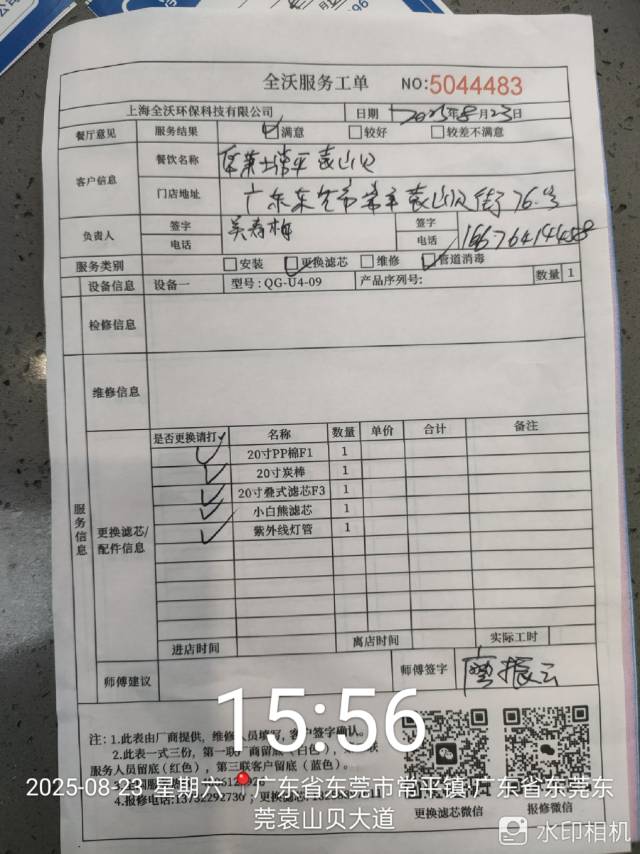 全沃服务工单 NO:5044483
上海全沃环保科技有限公司 日期 2025年8月23日
餐厅意见 服务结果 满意 较好 较差不满意
客户信息 餐饮名称 常平袁山贝
门店地址 广东东莞市常平袁山贝街76号
负责人 签字 签字
电话 电话
服务类别 安装 更换滤芯 维修 管道消毒
设备信息 设备一 型号:QG-U4-09 产品序列号: 数量 1
检修信息
维修信息
服务信息
更换滤芯/
配件信息
是否更换请打✓ 名称 数量 单价 合计 备注
✓ 20寸PP棉F1 1
✓ 20寸炭棒 1
✓ 20寸叠式滤芯F3 1
✓ 小白熊滤芯 1
✓ 紫外线灯管 1
进店时间 离店时间 实际工时
师傅建议 师傅签字 振云
15:56
注:1.此表由厂商提供,维修人员填写,客户签字确认。
2.此表一式三份,第一联厂商留底(白色),
服务人员留底(红色),第三联客户留底(蓝色)。
4.报修电话:13732292730
更换滤芯微信 报修微信
2025-08-23 星期六 广东省东莞市常平镇·广东省东莞东
莞袁山贝大道
水印相机